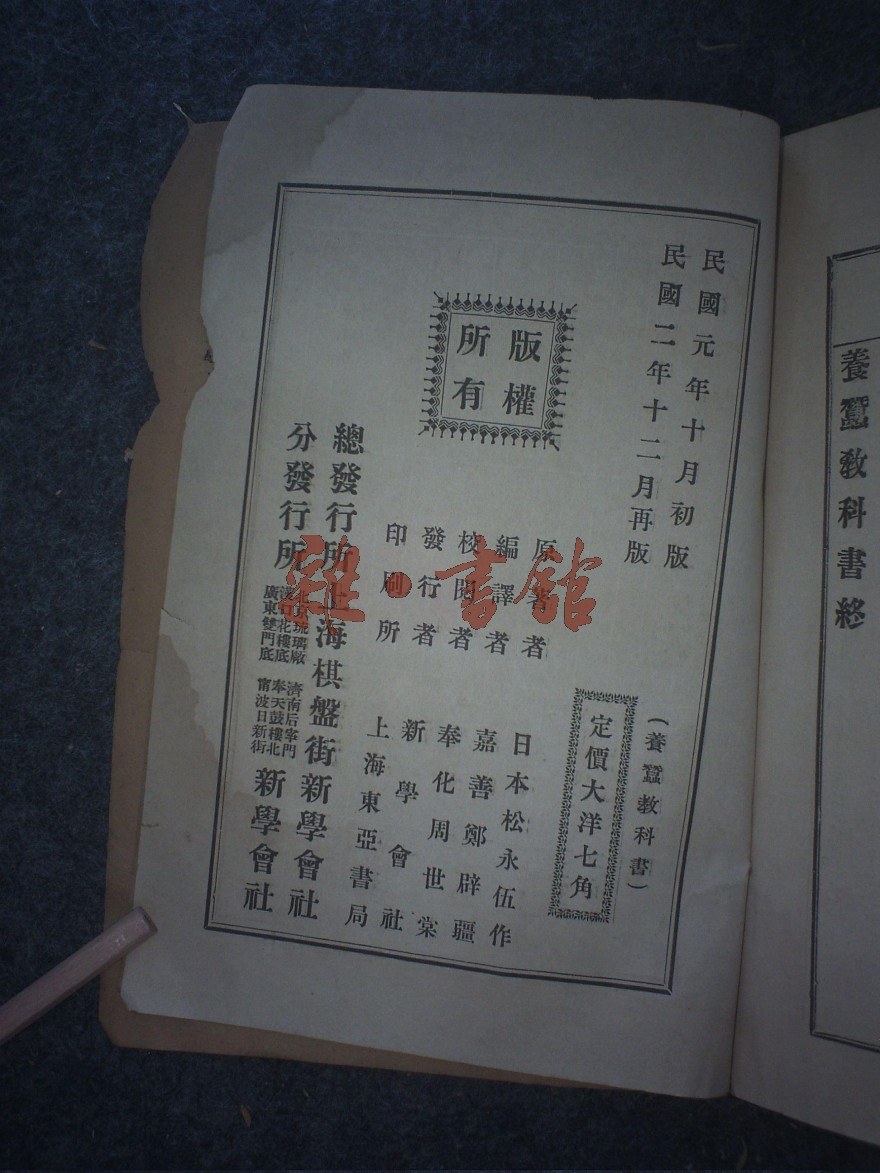 養蠶教科書終
民國元年十月初版
民國二年十二月再版
(養蠶教科書)
定價大洋七角
版權
所有
原著者 日本松永伍作
編譯者 嘉善鄭辟疆
校閱者 奉化周世棠
發行者 新學會社
印刷所 上海東亞書局
總發行所 上海棋盤街新學會社
分發行所
北京琉璃廠 濟南后宰門
漢口花樓底 奉天鼓樓北
廣東雙門底 甯波日新街
新學會社
雜·書館